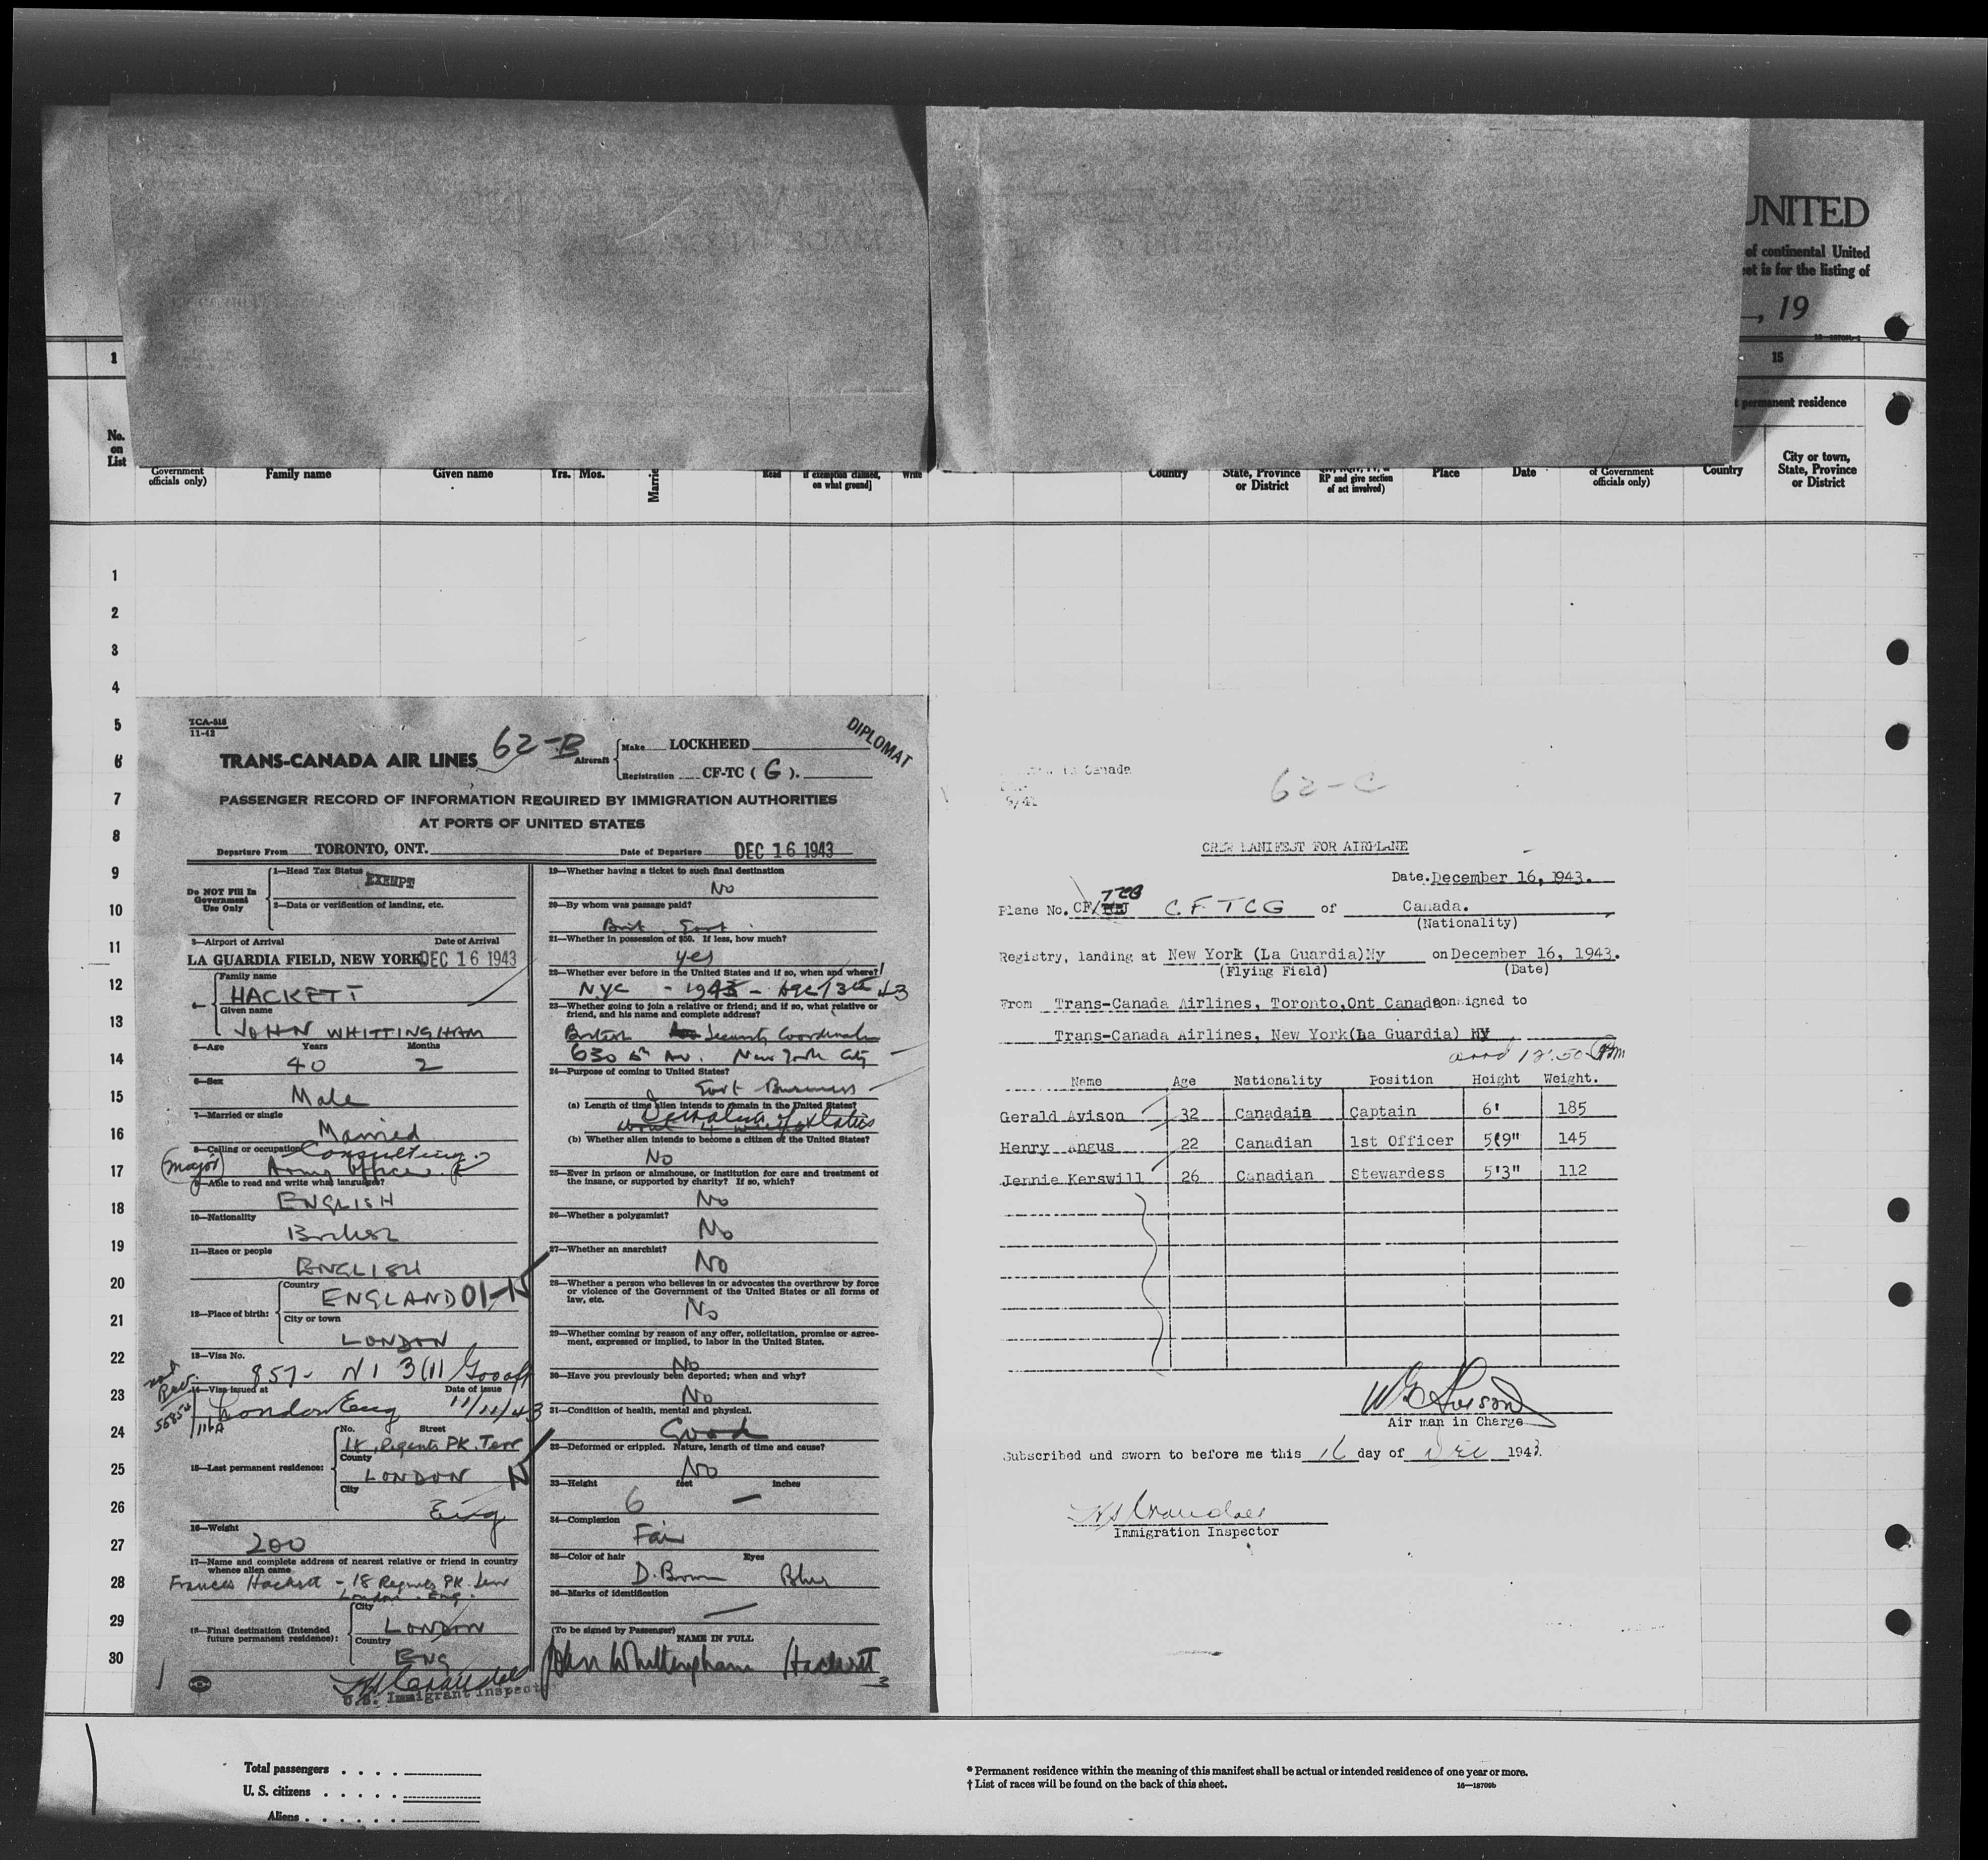 UNITED
of continental United
et is for the listing of
, 19
1
15
permanent residence
No.
on
List
Government
officials only)
Family name
Given name
Yrs. Mos.
Marrie
Read
if exemption claimed,
on what ground]
Write
Country
State, Province
or District
RP and give section
of act involved)
Place
Date
of Government
officials only)
Country
City or town,
State, Province
or District
1
2
3
4
5
6
7
8
9
10
11
12
13
14
15
16
17
18
19
20
21
22
23
24
25
26
27
28
29
30
TCA-518
11-42
TRANS-CANADA AIR LINES
62-B
Aircraft
Make LOCKHEED
Registration CF-TC ( G ).
DIPLOMAT
PASSENGER RECORD OF INFORMATION REQUIRED BY IMMIGRATION AUTHORITIES
AT PORTS OF UNITED STATES
Departure From TORONTO, ONT. Date of Departure DEC 16 1943
Do NOT Fill In
Government
Use Only
1—Head Tax Status EXEMPT
2—Data or verification of landing, etc.
3—Airport of Arrival Date of Arrival
LA GUARDIA FIELD, NEW YORK DEC 16 1943
4—
Family name
HACKETT
Given name
JOHN WHITTINGHAM
5—Age Years Months
40 2
6—Sex
Male
7—Married or single
Married
8—Calling or occupation Consulting
(Major) Army Officer
9—Able to read and write what language?
ENGLISH
10—Nationality
British
11—Race or people
ENGLISH
12—Place of birth:
Country
ENGLAND 01-N
City or town
LONDON
13—Visa No.
857- N I 3(11
14—Visa issued at Date of issue
London Eng 11/11/43
15—Last permanent residence:
No. Street
18, Regents PK. Terr
County
LONDON N
City
Eng
16—Weight
200
17—Name and complete address of nearest relative or friend in country
whence alien came
Frances Hackett - 18 Regents PK. Terr
London. Eng.
18—Final destination (Intended
future permanent residence):
City
LONDON
Country
ENG
U.S. Immigrant Inspector
19—Whether having a ticket to such final destination
No
20—By whom was passage paid?
Brit. Govt.
21—Whether in possession of $50. If less, how much?
yes
22—Whether ever before in the United States and if so, when and where?
NYC - 1943 - Dec 13th 43
23—Whether going to join a relative or friend; and if so, what relative or
friend, and his name and complete address?
British Security Coordination
630 5th Av. New York City
24—Purpose of coming to United States?
Govt Business
(a) Length of time alien intends to remain in the United States?
Duration of Status
about 4 weeks
(b) Whether alien intends to become a citizen of the United States?
No
25—Ever in prison or almshouse, or institution for care and treatment of
the insane, or supported by charity? If so, which?
No
26—Whether a polygamist?
No
27—Whether an anarchist?
No
28—Whether a person who believes in or advocates the overthrow by force
or violence of the Government of the United States or all forms of
law, etc.
No
29—Whether coming by reason of any offer, solicitation, promise or agree-
ment, expressed or implied, to labor in the United States.
No
30—Have you previously been deported; when and why?
No
31—Condition of health, mental and physical.
Good
32—Deformed or crippled. Nature, length of time and cause?
No
33—Height feet inches
6 —
34—Complexion
Fair
35—Color of hair Eyes
D. Brown Blue
36—Marks of identification
—
(To be signed by Passenger)
NAME IN FULL
John Whittingham Hackett
Canada
62-C
CREW MANIFEST FOR AIRPLANE
Date. December 16, 1943.
Plane No. CF/ TCG C F T C G of Canada.
(Nationality)
Registry, landing at New York (La Guardia)Ny on December 16, 1943.
(Flying Field) (Date)
From Trans-Canada Airlines, Toronto,Ont Canada consigned to
Trans-Canada Airlines, New York(La Guardia) NY
arrd 12:50 Pm
Name Age Nationality Position Height Weight.
Gerald Avison 32 Canadain Captain 6' 185
Henry Angus 22 Canadian 1st Officer 5'9" 145
Jennie Kerswill 26 Canadian Stewardess 5'3" 112
Air man in Charge
Subscribed and sworn to before me this 16 day of Dec 1943.
Immigration Inspector
Total passengers . . . .
U. S. citizens . . . . .
Aliens . . . . . .
* Permanent residence within the meaning of this manifest shall be actual or intended residence of one year or more.
† List of races will be found on the back of this sheet.
16—18700b